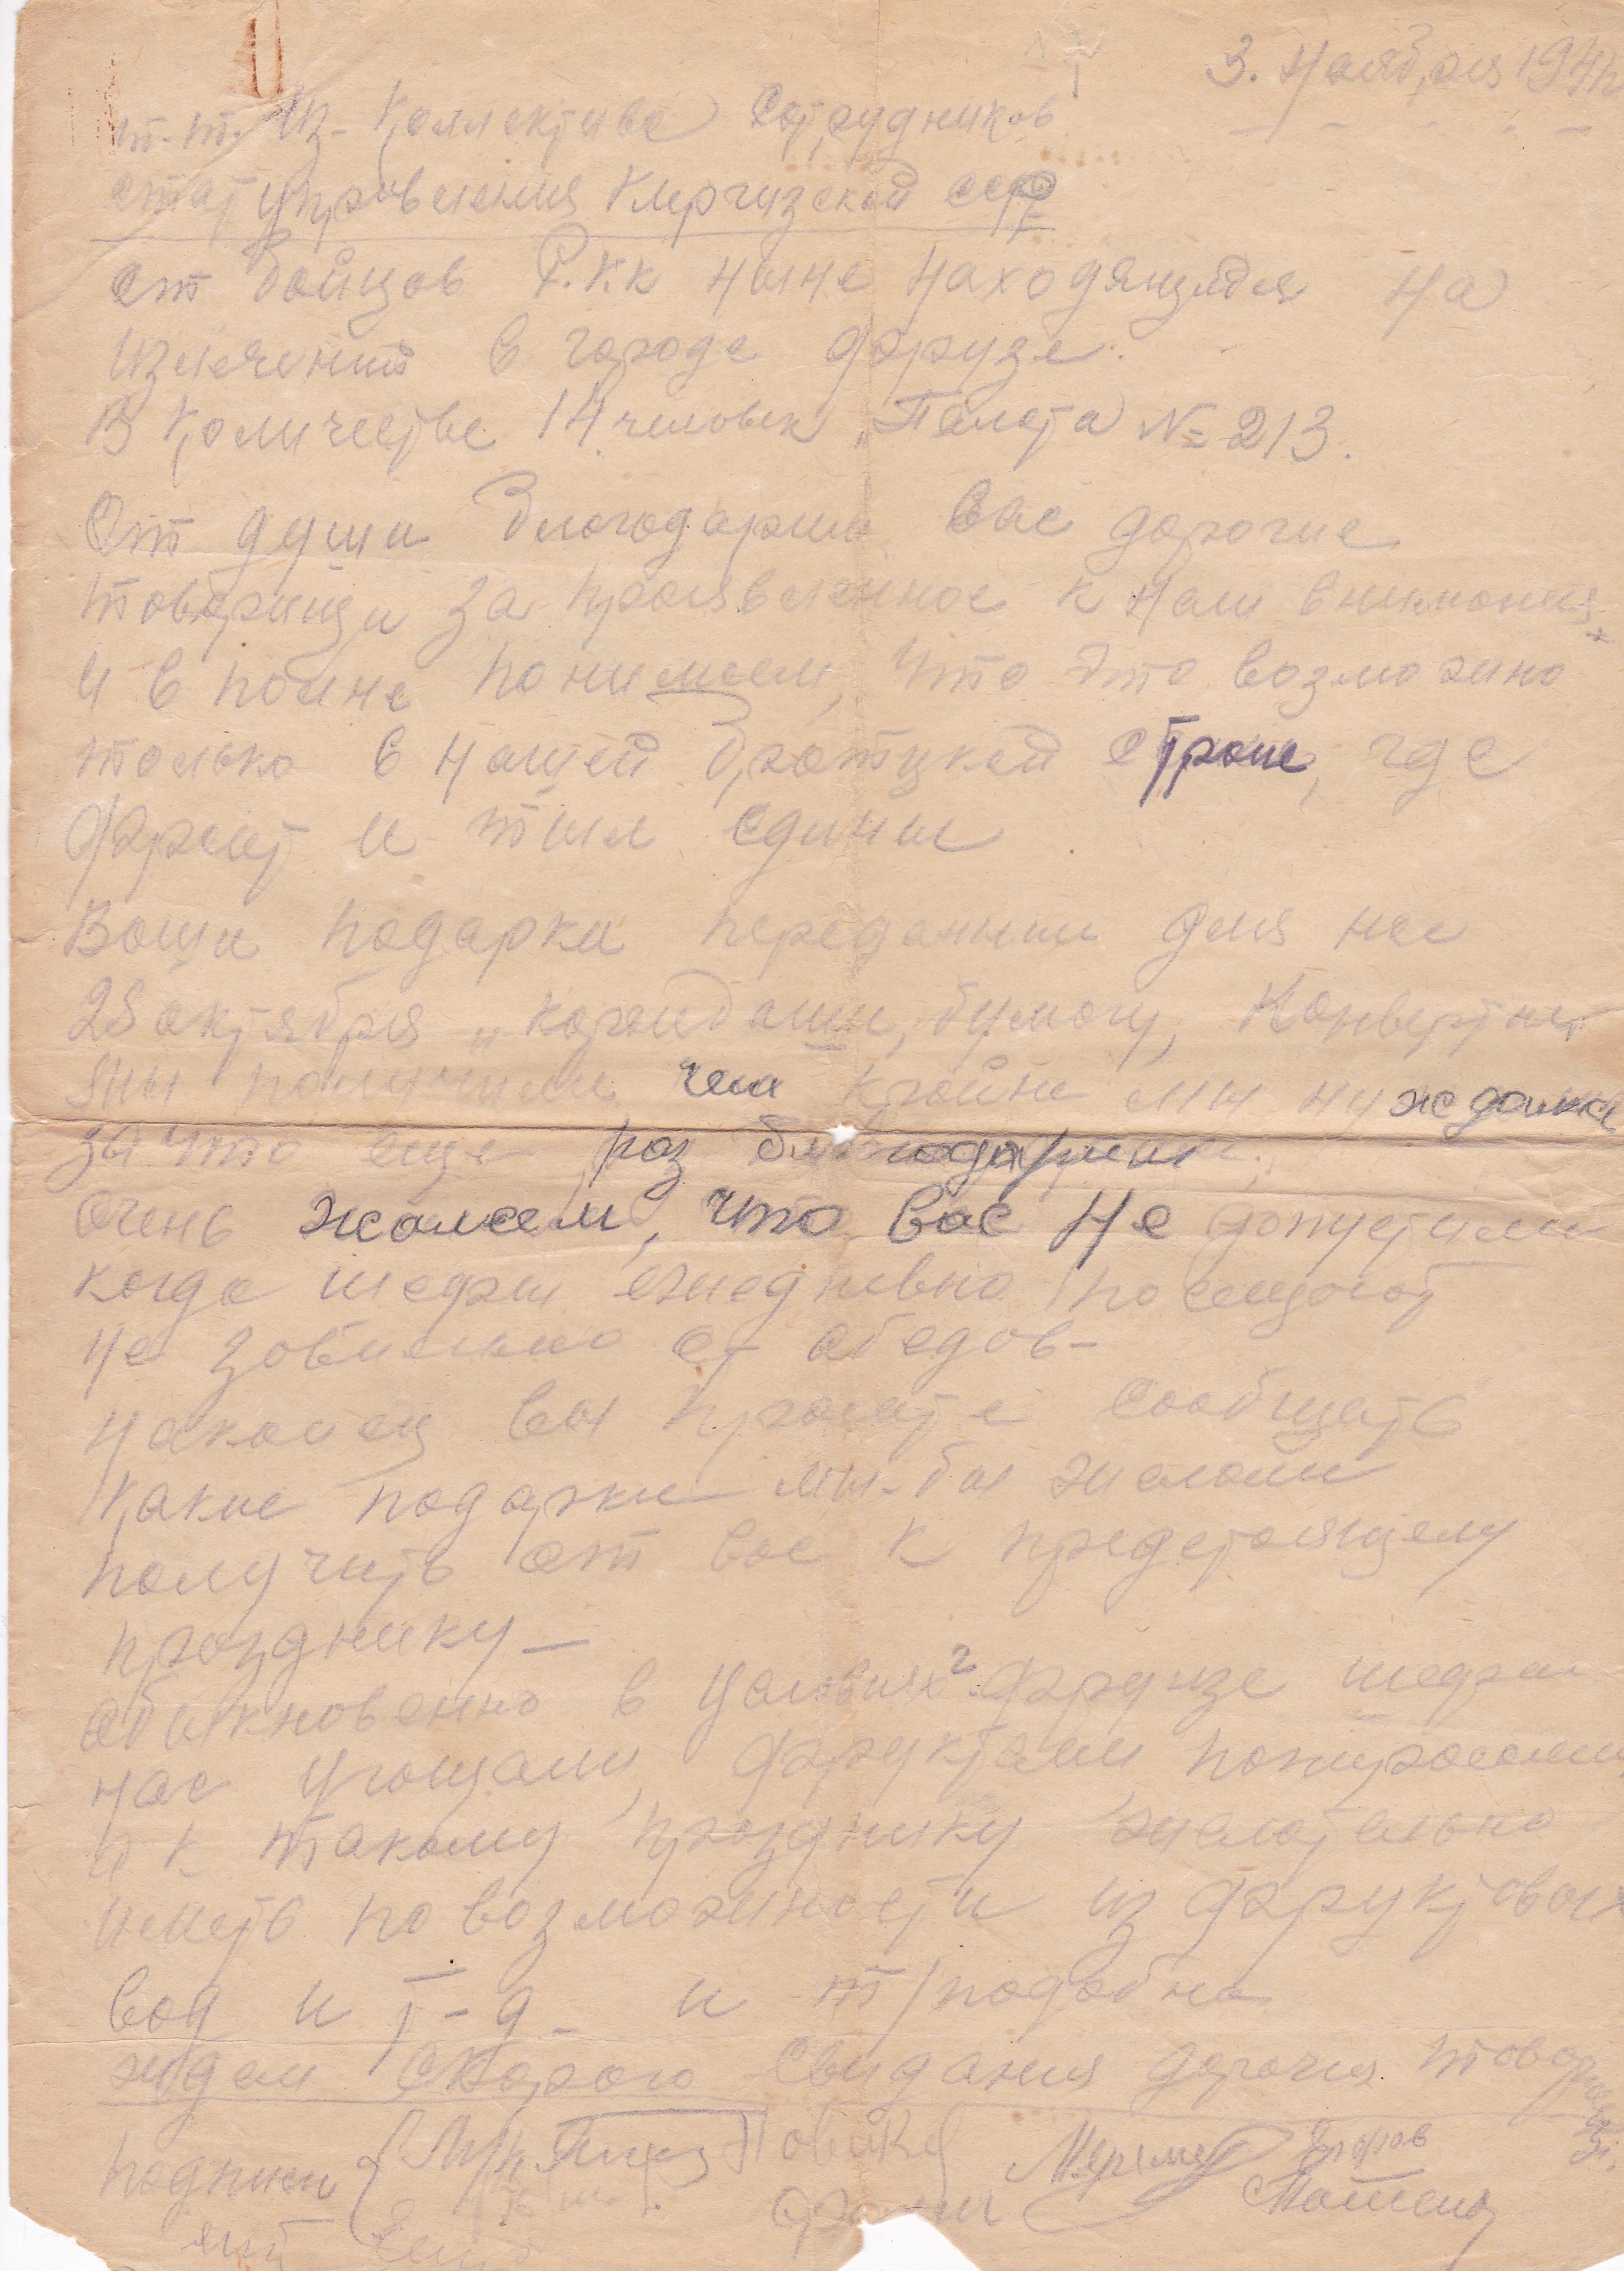 3. Наября 194
т.т. Из- Коллектива Сотрудников
статуправления Киргизской ССР
от бойцов Р.К.К ныне находящийся на
излечений в городе фрузе.
В количестве 14 человек „Палата № 213.
От души благодарим вас дорогие
товарищи за проявленное к нам внимония
и в полне понимаем, что это возможно
только в нашей братцкой стране, где
фронт и тыл едины
Ваши подарки переданыи для нас
28 октября „ карандаши, бумагу, Конверты,
мы получили чем крайне мы нуждаимся
за что еще раз благодарим.
очень жалеем, что вас не допустили
когда шефы ежедневно посещают
не зовисимо от обедов-
наконец вы просите сообщать
какие подарки мы-бы желали
получить от вас к предстоящему
празднику —
обыкновенно в условиях г. Фрунзе шефы
нас угощали, фруктами, попиросами,
и к такому празднику желательно
иметь по возможности из фруктовых
вод и т-д- и т/подобна
ждем скорого свидания дорогия товарищи
Подписи